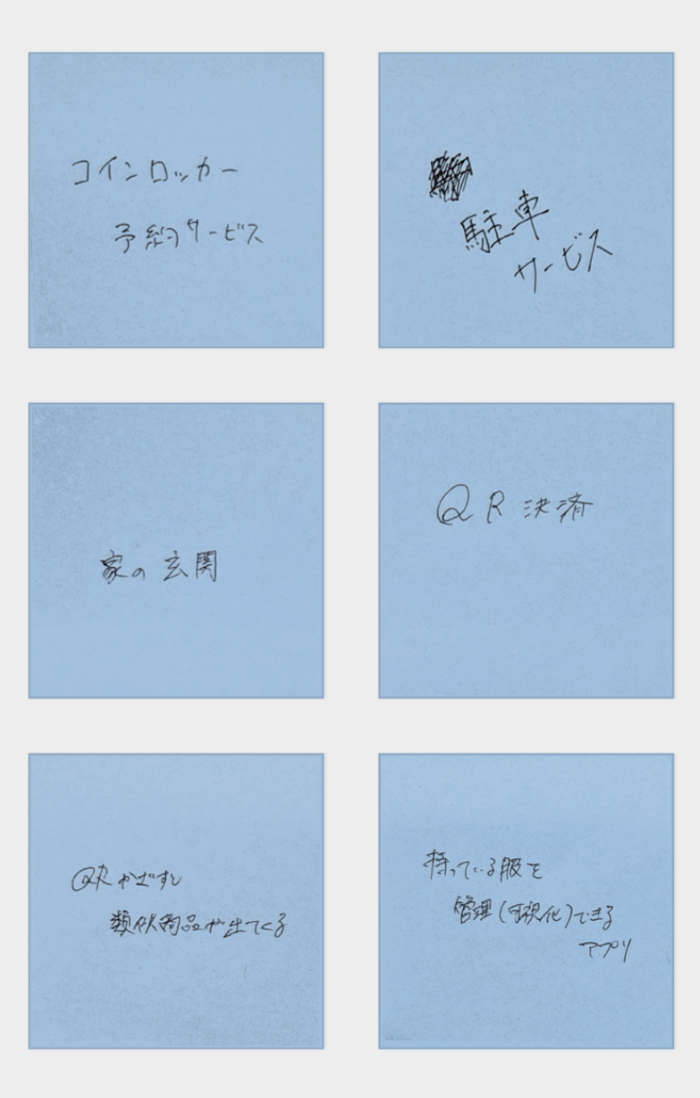 コインロッカー
予約サービス
駐車
サービス
家の玄関
QR決済
QRかざすと
類似商品が出てくる
持っている服を
管理(可視化)できる
アプリ